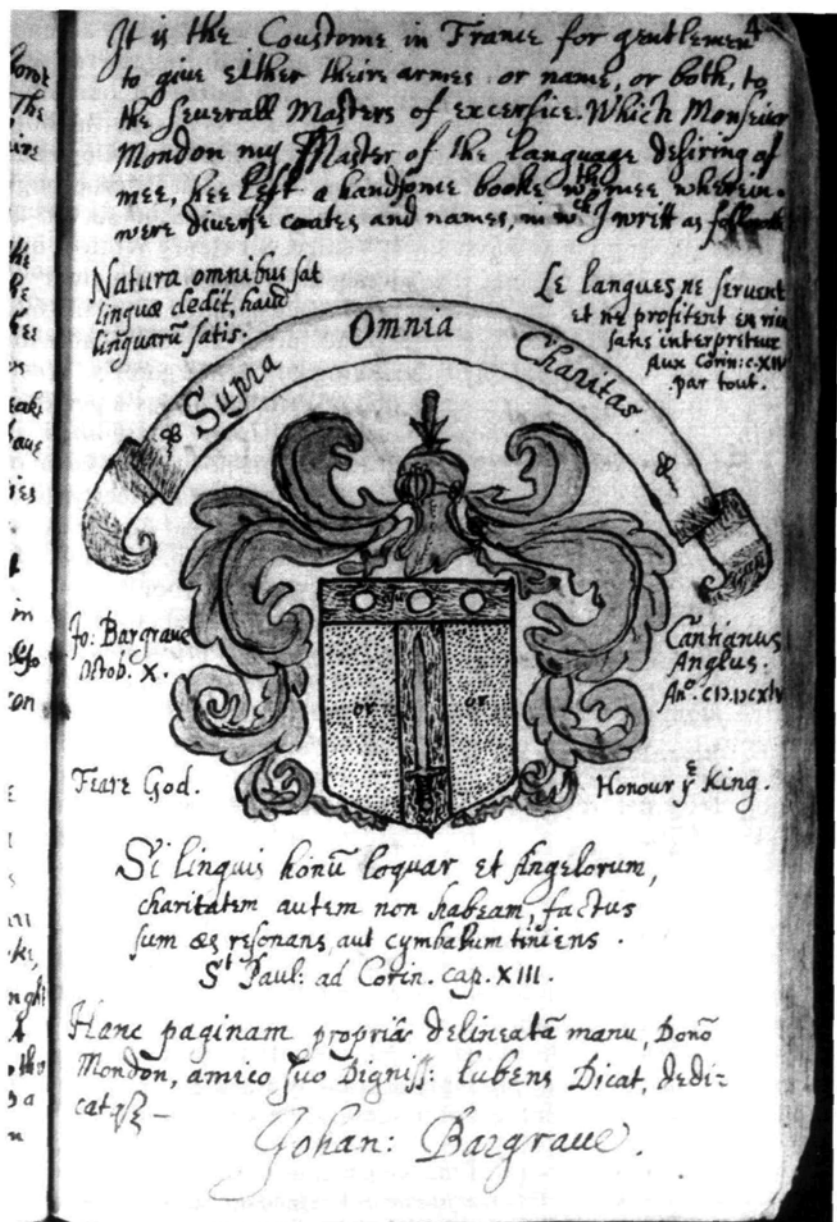 It is the Coustome in France for gentlemen
4
to giue either theire armes or name, or both, to
the seuerall Masters of excersice. Which Monseiur
Mondon my Master of the language desiring of
mee, hee left a handsome booke wth mee wherein.
were diuerse coates and names, in wch I writt as
Natura omnibus sat
linguæ dedit, haud
linguarū satis.
Le langues ne seruent
et ne profitent en rien
satis interpreteur
Aux Corin: c. XIV
par tout.
Supra Omnia Charitas.
or or
Jo: Bargraue
Octob. X.
Cantianus
Anglus.
Ano. CIↃ.IↃCXLV
Feare God.
Honour ye King.
Si linguis honū loquar et Angelorum,
charitatem autem non habeam, factus
sum æs resonans, aut cymbalum tiniens.
St Paul: ad Corin. cap. XIII.
Hanc paginam propriâ delineatā manu, Donō
Mondon, amico suo Digniss: lubens Dicat, dedi=
catqƺ –
Johan: Bargraue.